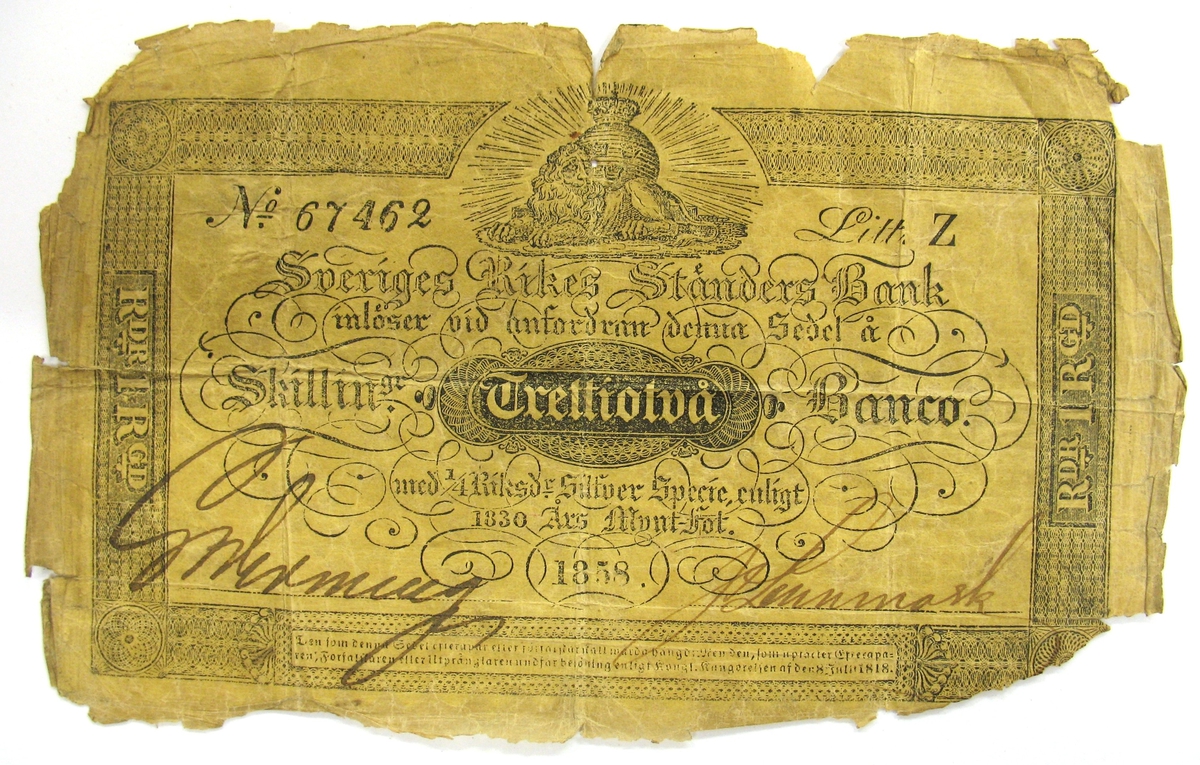 No. 67462 Litt. Z
Sveriges Rikes Ständers Bank
inlöser vid anfordran denna Sedel å
Skillingr Trettiotvå Banco.
med 1/4 Riksdr Silfver Specie, enligt
1830 Års Mynt-Fot.
1858.
RDR 1 RGD
RDR 1 RGD
Den som denna Sedel efterapar eller förfalskar skall warda hängd: Men den, som uptäcker Efterapa-
ren, Förfalskaren eller Utprånglaren undfår belöning enligt Kongl. Kungörelsen af den 8 Juli 1818.